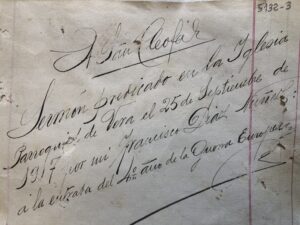 5132-3
A San Cleofás
Sermón predicado en la Iglesia
Parroquial de Vera el 25 de Septiembre de
1917 por mí Francisco Díaz Núñez
á la entrada del 4º año de la Guerra Europea